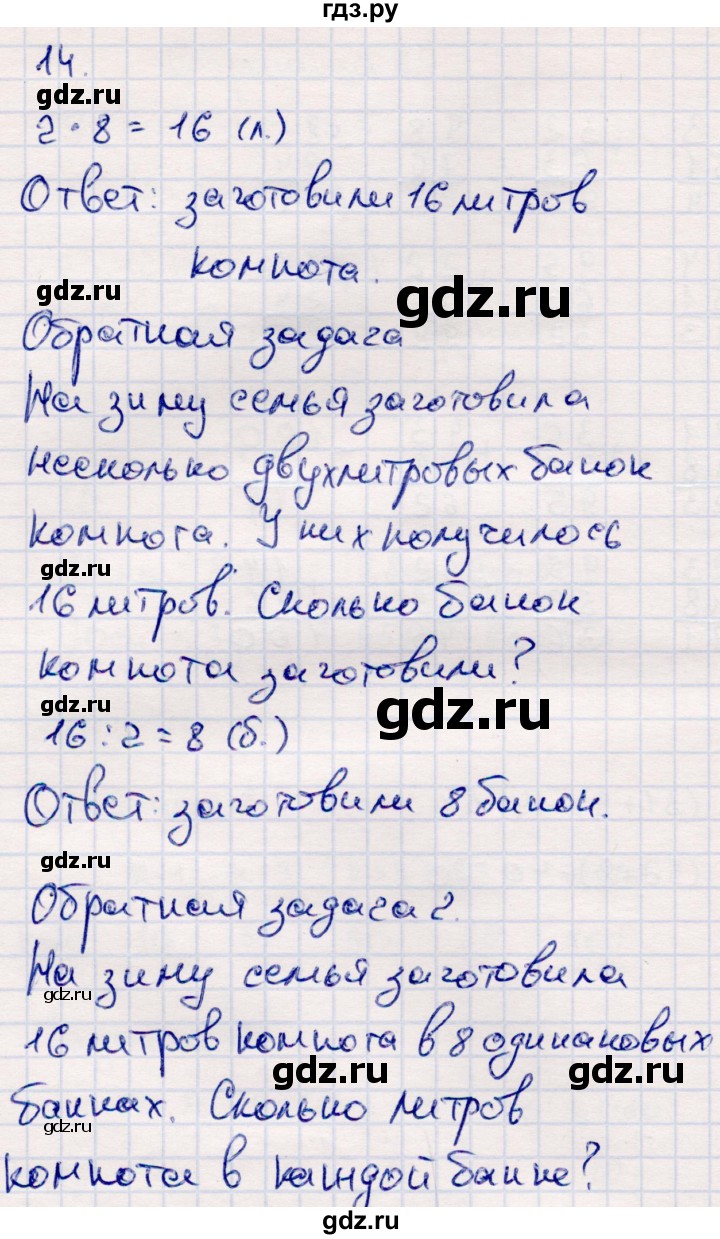 гдз.ру
14.
gdz.ru
2·8=16 (л.)
Ответ: заготовили 16 литров
компота.
gdz.ru
gdz.ru
Обратная задача
На зиму семья заготовила
несколько двухлитровых банок
компота. У них получилось
gdz.ru
16 литров. Сколько банок
компота заготовили?
gdz.ru
gdz.ru
16:2=8 (б.)
Ответ: заготовили 8 банок.
gdz.ru
Обратная задача 2.
На зиму семья заготовила
gdz.ru
16 литров компота в 8 одинаковых
gdz.ru
gdz.ru
банках. Сколько литров
gdz.ru
компота в каждой банке?
gdz.ru